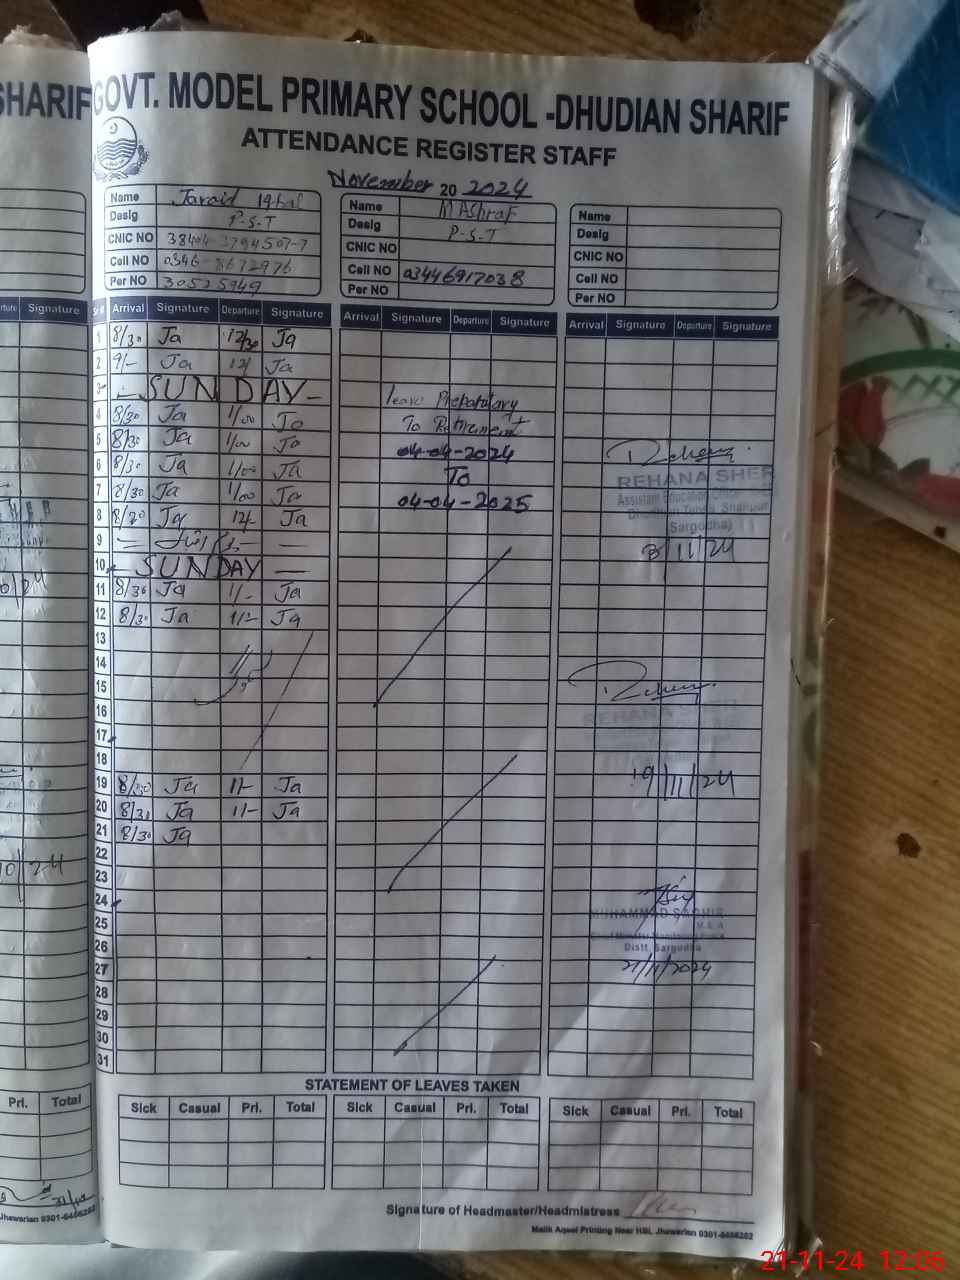 SHARIF
GOVT. MODEL PRIMARY SCHOOL -DHUDIAN SHARIF
ATTENDANCE REGISTER STAFF
November 20 2024
Name Javaid Iqbal
Desig P-S-T
CNIC NO
Cell NO
Per NO 30525949
Name M Ashraf
Desig P-S-T
CNIC NO
Cell NO 03446917038
Per NO
Name
Desig
CNIC NO
Cell NO
Per NO
Signature
Sr # Arrival Signature Departure Signature
Arrival Signature Departure Signature
Arrival Signature Departure Signature
1 8/30 Ja 12/30 Ja
2 9/- Ja 12/ Ja
3 - SUNDAY -
4 8/30 Ja 1/00 Ja
5 8/30 Ja 1/00 Ja
6 8/30 Ja 1/00 Ja
7 8/30 Ja 1/00 Ja
8 8/30 Ja 12/- Ja
9
10 - SUNDAY -
11 8/30 Ja 1/- Ja
12 8/30 Ja 1/- Ja
13
14
15
16
17
18
19 8/30 Ja 11- Ja
20 8/30 Ja 11- Ja
21 8/30 Ja
22
23
24
25
26
27
28
29
30
31
Leave Preparatory
To Retirement
04-04-2024
To
04-04-2025
REHANA SHER
Assistant Education
(Sargodha)
8/11/24
REHANA SHER
19/11/24
MUHAMMAD SAGHIR
M.E.A
Distt. Sargodha
21/11/2024
STATEMENT OF LEAVES TAKEN
Pri. Total
Sick Casual Pri. Total
Sick Casual Pri. Total
Sick Casual Pri. Total
Signature of Headmaster/Headmistress
Malik Aqeel Printing Near HBL Jhawarian 0301-6486282
Jhawarian 0301-6486282
21-11-24 12:06